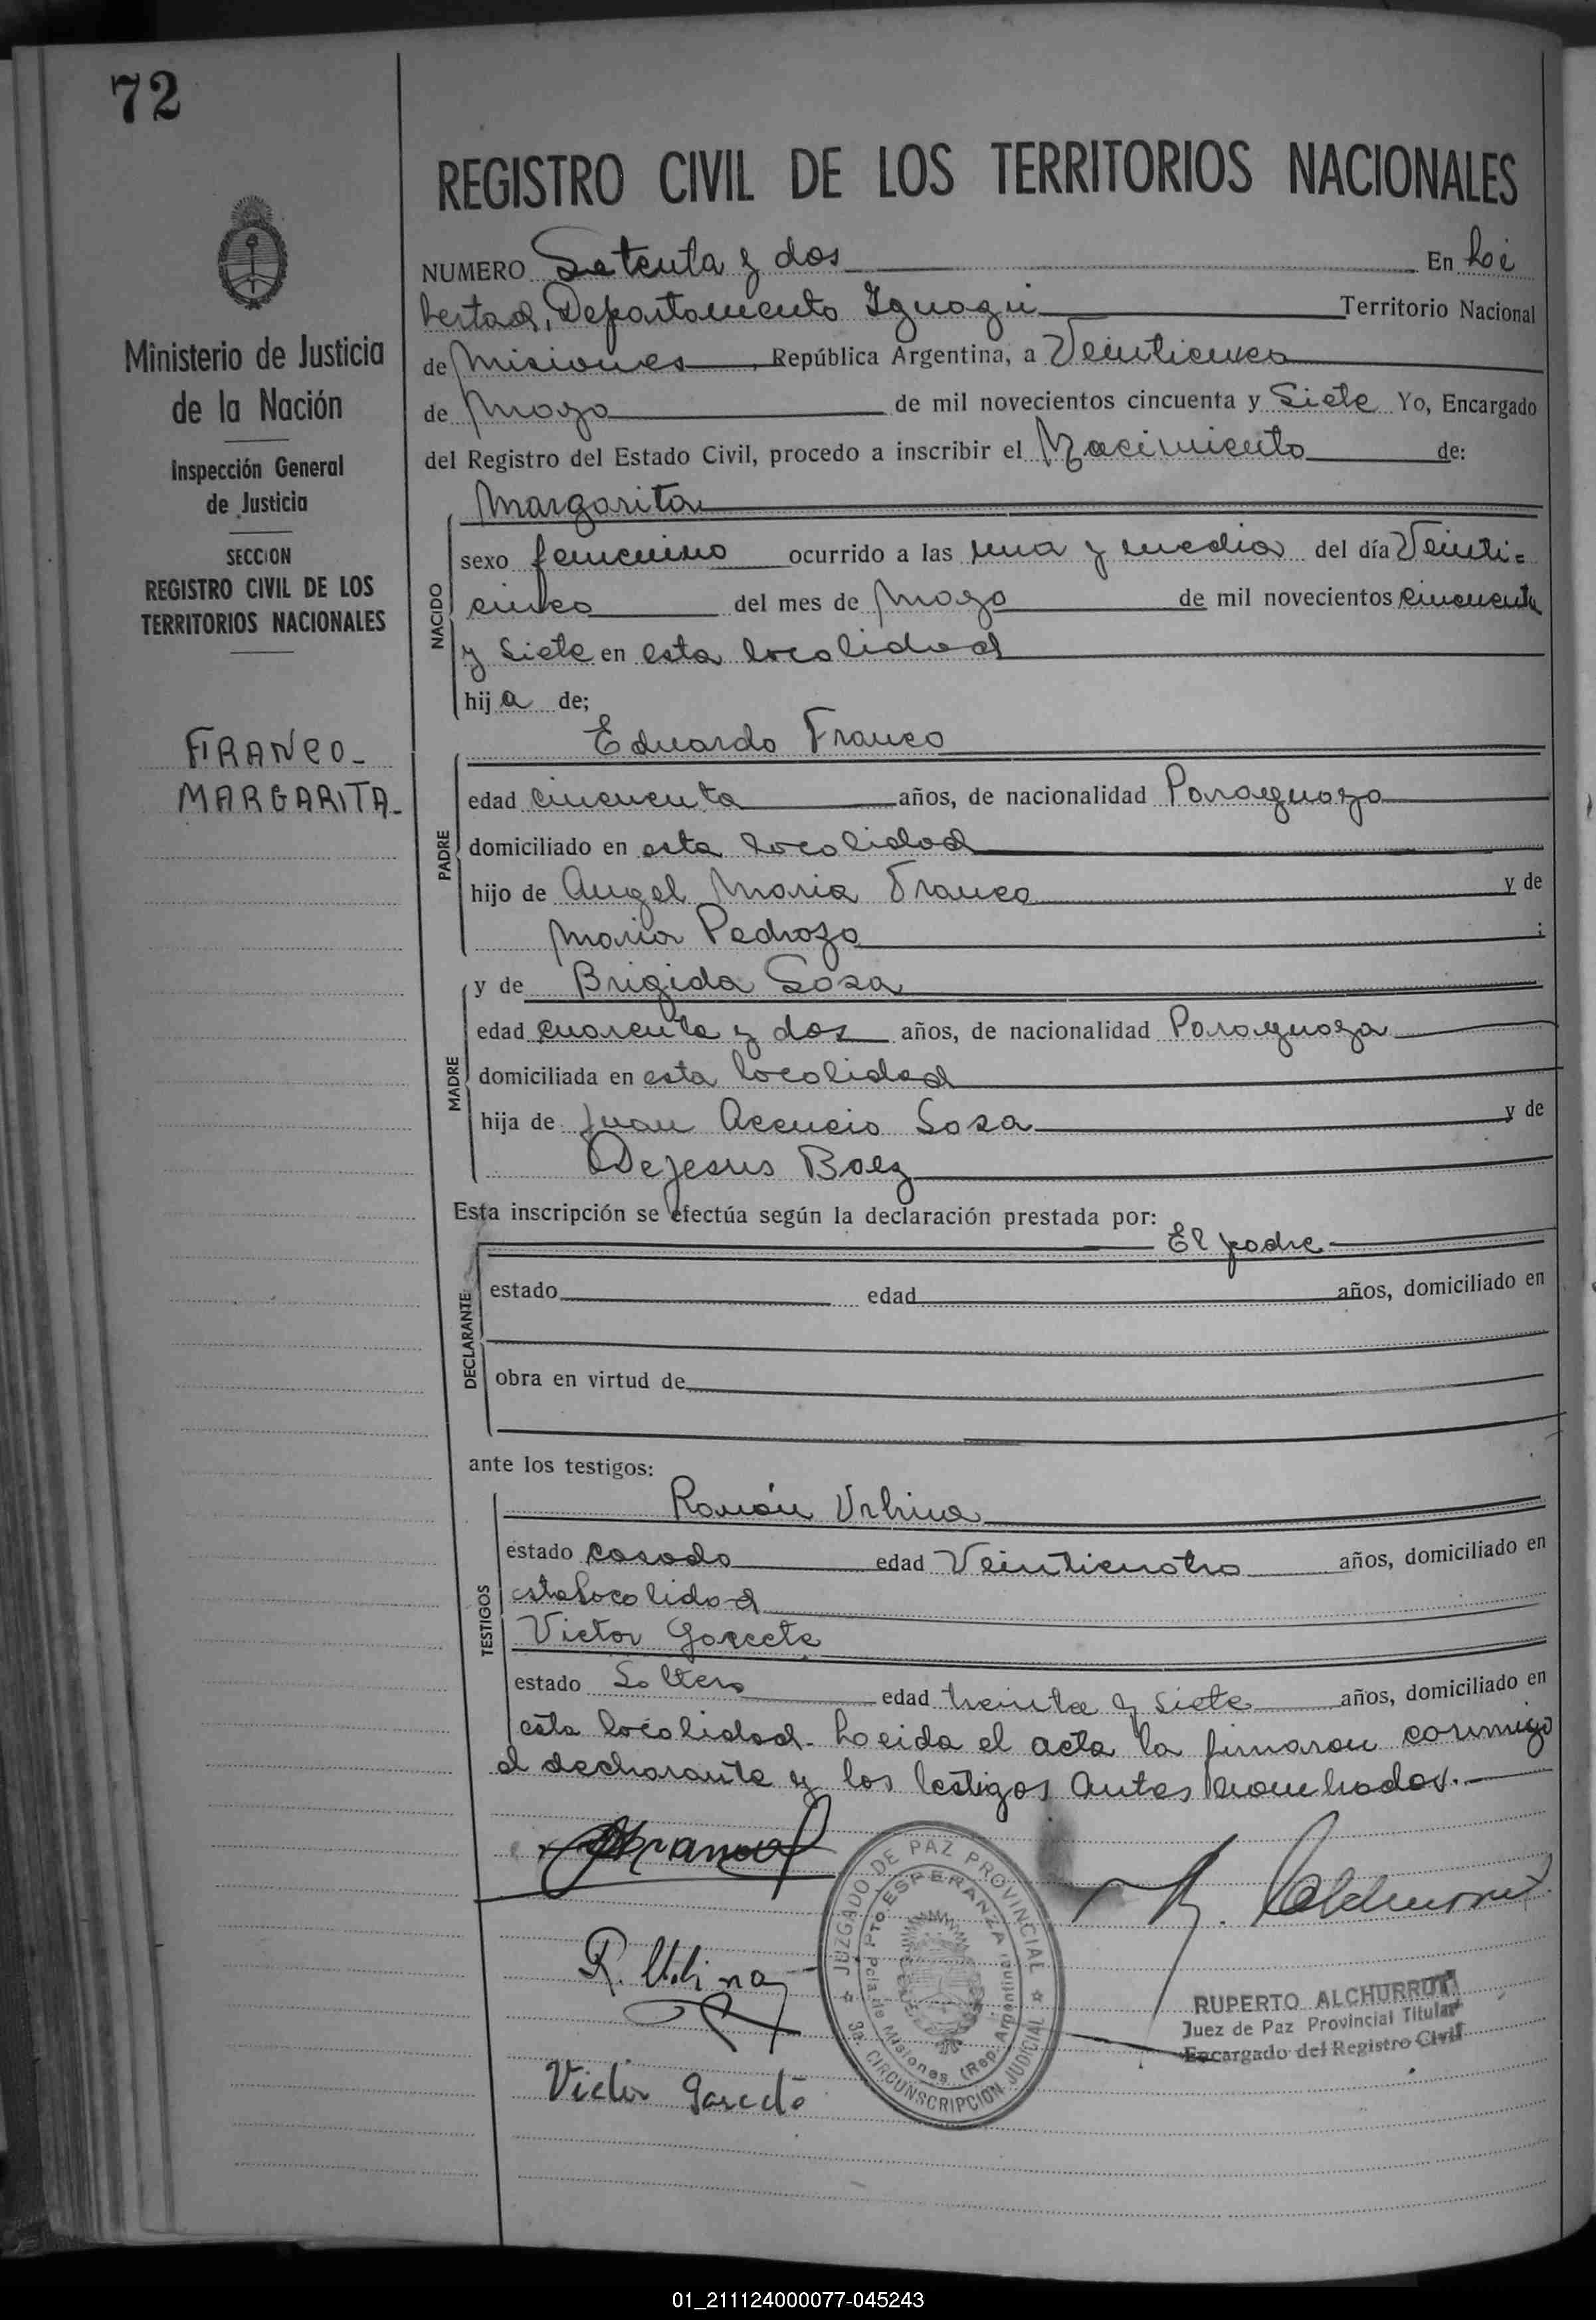 72
REGISTRO CIVIL DE LOS TERRITORIOS NACIONALES
Ministerio de Justicia
de la Nación
Inspección General
de Justicia
SECCION
REGISTRO CIVIL DE LOS
TERRITORIOS NACIONALES
FRANCO-
MARGARITA-
NUMERO Setenta y dos En Li
bertad, Departamento Iguazú Territorio Nacional
de Misiones, República Argentina, a
de Mayo de mil novecientos cincuenta y Siete Yo, Encargado
del Registro del Estado Civil, procedo a inscribir el Nacimiento de:
NACIDO
Margarita
sexo femenino ocurrido a las una y media del día Veinti=
cinco del mes de Mayo de mil novecientos cincuenta
y Siete en esta localidad
hija de;
PADRE
Eduardo Franco
edad cincuenta años, de nacionalidad Paraguayo
domiciliado en esta localidad
hijo de Angel Maria Franco y de
Maria Pedrozo;
MADRE
y de Brigida Sosa
edad cuarenta y dos años, de nacionalidad Paraguaya
domiciliada en esta localidad
hija de Juan Acencio Sosa y de
Dejesus Baez
Esta inscripción se efectúa según la declaración prestada por:
DECLARANTE
El padre
estado edad años, domiciliado en
obra en virtud de
ante los testigos:
TESTIGOS
Román Urbina
estado casado edad Veinticuatro años, domiciliado en
esta localidad
Victor Garcete
estado Soltero edad treinta y siete años, domiciliado en
esta localidad- Leida el acta la firmaron conmigo
el declarante y los testigos antes nombrados.-
R. Urbina
Victor Garcete
JUZGADO DE PAZ PROVINCIAL
3a. CIRCUNSCRIPCION JUDICIAL
Pto ESPERANZA
Pcia de Misiones (Rep. Argentina)
RUPERTO ALCHURRUT
Juez de Paz Provincial Titular
Encargado del Registro Civil
01_211124000077-045243